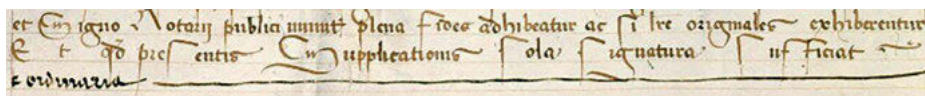 et Signo Notarii publici munit plena fides adhibeatur ac si lre originales exhiberentur
Et qd presentis Supplicationis sola signatura sufficiat
ordinaria